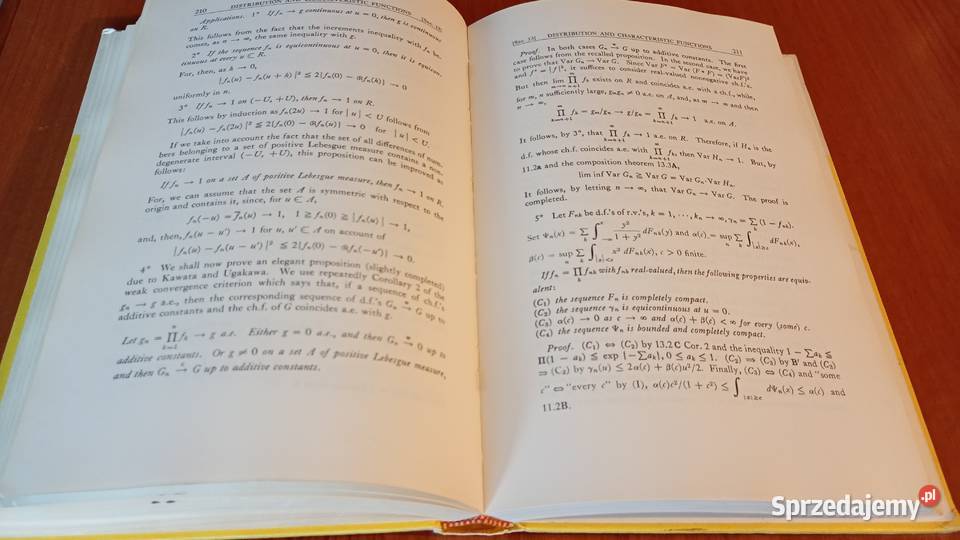 210 DISTRIBUTION AND CHARACTERISTIC FUNCTIONS [Sec. 13]
Applications. 1° If fₙ → g continuous at u = 0, then g is continuous
on R.
This follows from the fact that the increments inequality with fₙ be-
comes, as n → ∞, the same inequality with g.
2° If the sequence fₙ is equicontinuous at u = 0, then it is equicon-
tinuous at every u ∈ R.
For, then, as h → 0,
|fₙ(u) − fₙ(u + h)|² ≤ 2|fₙ(0) − ℜfₙ(h)| → 0
uniformly in n.
3° If fₙ → 1 on (−U, +U), then fₙ → 1 on R.
This follows by induction as fₙ(2u) → 1 for |u| < U follows from
|fₙ(u) − fₙ(2u)|² ≦ 2|fₙ(0) − ℜfₙ(u)| → 0 for |u| < U.
If we take into account the fact that the set of all differences of num-
bers belonging to a set of positive Lebesgue measure contains a non-
degenerate interval (−U, +U), this proposition can be improved as
follows:
If fₙ → 1 on a set A of positive Lebesgue measure, then fₙ → 1 on R.
For, we can assume that the set A is symmetric with respect to the
origin and contains it, since, for u ∈ A,
fₙ(−u) = f̄ₙ(u) → 1, 1 ≧ fₙ(0) ≧ |fₙ(u)| → 1,
and, then, fₙ(u − u′) → 1 for u, u′ ∈ A on account of
|fₙ(u) − fₙ(u − u′)|² ≦ 2|fₙ(0) − ℜfₙ(−u′)| → 0.
4° We shall now prove an elegant proposition (slightly completed)
due to Kawata and Ugakawa. We use repeatedly Corollary 2 of the
weak convergence criterion which says that, if a sequence of ch.f.'s
gₙ → g a.e., then the corresponding sequence of d.f.'s Gₙ →ʷ G up to
additive constants and the ch.f. of G coincides a.e. with g.
Let gₙ = ∏ₖ₌₁ⁿ fₖ → g a.e. Either g = 0 a.e., and then Gₙ →ʷ 0 up to
additive constants. Or g ≠ 0 on a set A of positive Lebesgue measure,
and then Gₙ →ᶜ G up to additive constants.
[Sec. 13] DISTRIBUTION AND CHARACTERISTIC FUNCTIONS 211
Proof. In both cases Gₙ →ʷ G up to additive constants. The first
case follows from the recalled proposition. In the second case, we have
to prove that Var Gₙ → Var G. Since Var F² = Var (F * F) = (Var F)²
and f² = |f|², it suffices to consider real-valued nonnegative ch.f.'s.
But then lim ∏ fₖ exists on R and coincides a.e. with a ch.f., while,
for m, n sufficiently large, gₘgₙ ≠ 0 a.e. on A, and, as m → ∞ and then
n → ∞,
∏ₖ₌ₙ₊₁ᵐ fₖ = gₘ/gₙ → g/gₙ = ∏ₖ₌ₙ₊₁^∞ fₖ → 1 a.e. on A.
It follows, by 3°, that ∏ₖ₌ₙ₊₁^∞ fₖ → 1 a.e. on R. Therefore, if Hₙ is the
d.f. whose ch.f. coincides a.e. with ∏ₖ₌ₙ₊₁^∞ fₖ, then Var Hₙ → 1. But, by
11.2a and the composition theorem 13.3A,
lim inf Var Gₙ ≧ Var G = Var Gₙ·Var Hₙ.
It follows, by letting n → ∞, that Var Gₙ → Var G. The proof is
completed.
5° Let Fₙₖ be d.f.'s of r.v.'s, k = 1, ···, kₙ → ∞, γₙ = ∑ₖ(1 − fₙₖ).
Set Ψₙ(x) = ∑ₖ ∫₋∞ˣ y²/(1 + y²) dFₙₖ(y) and α(c) = supₙ ∑ₖ ∫|x|≥c dFₙₖ(x),
β(c) = supₙ ∑ₖ ∫|x|<c x² dFₙₖ(x), c > 0 finite.
If fₙ = ∏ₖ fₙₖ with fₙₖ real-valued, then the following properties are equiv-
alent:
(C₁) the sequence Fₙ is completely compact.
(C₂) the sequence γₙ is equicontinuous at u = 0.
(C₃) α(c) → 0 as c → ∞ and α(c) + β(c) < ∞ for every (some) c.
(C₄) the sequence Ψₙ is bounded and completely compact.
Proof. (C₁) ⇔ (C₂) by 13.2C Cor. 2 and the inequality 1 − ∑aₖ ≦
∏(1 − aₖ) ≦ exp [−∑aₖ], 0 ≤ aₖ ≤ 1. (C₂) ⇒ (C₃) by B′ and (C₃)
⇒ (C₂) by γₙ(u) ≤ 2α(c) + β(c)u²/2. Finally, (C₃) ⇔ (C₄) and "some
c" ⇔ "every c" by (I), α(c)c²/(1 + c²) ≤ ∫|x|≥c dΨₙ(x) ≤ α(c) and
11.2B.
Sprzedajemy.pl